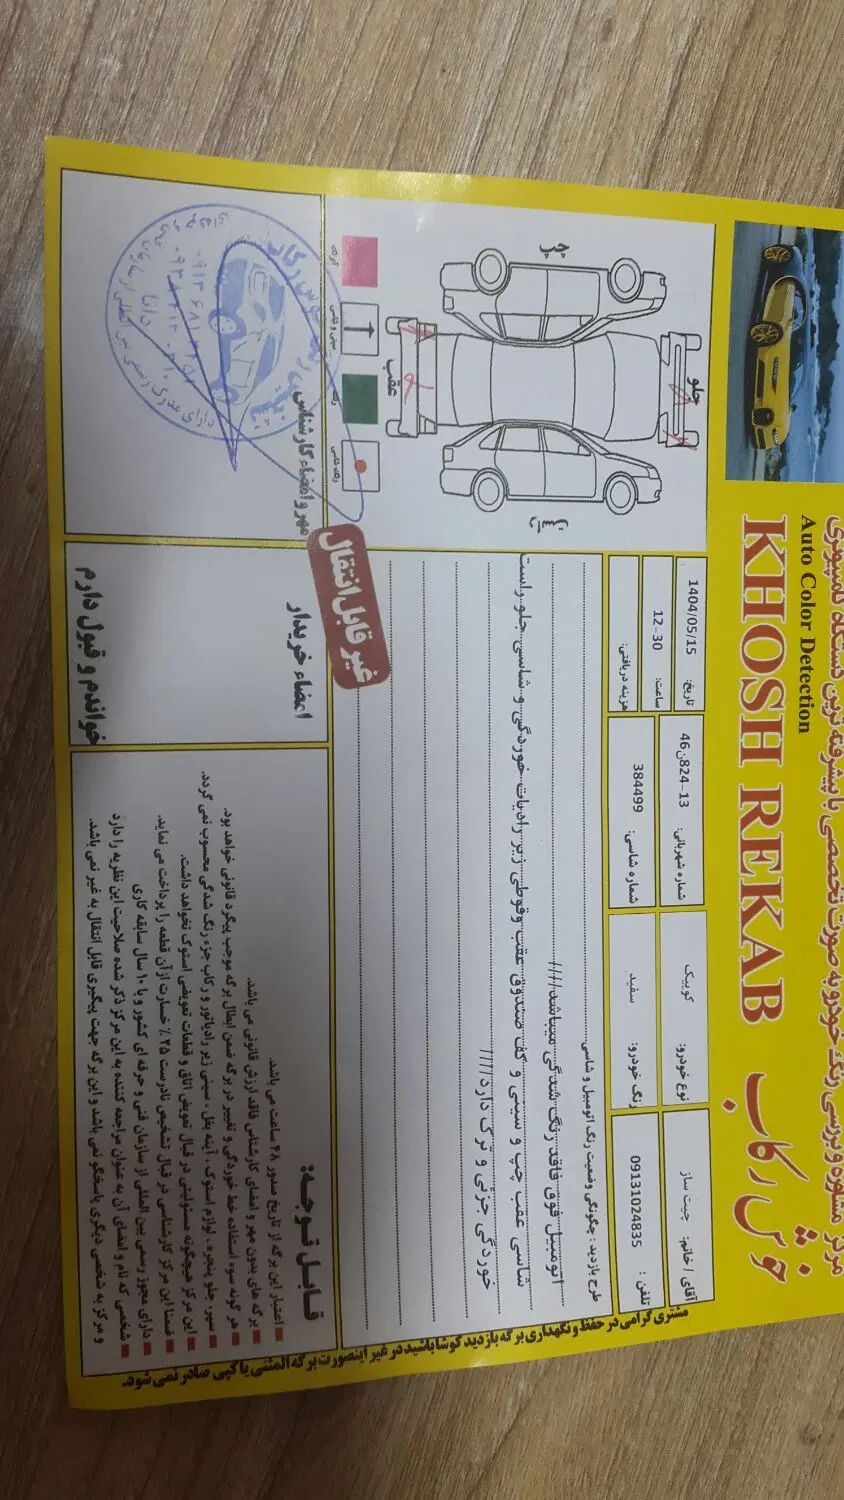 مرکز مشاوره و بررسی رنگ خودرو به صورت تخصصی با پیشرفته ترین دستگاه کامپیوتری
Auto Color Detection
KHOSH REKAB خوش رکاب
آقای / خانم: چیت ساز
نوع خودرو: کوییک
شماره شهربانی: 13-824ن46
تاریخ: 1404/05/15
تلفن : 09131024835
رنگ خودرو: سفید
شماره شاسی: 384499
ساعت: 12-30
هزینه دریافتی:
طرح بازدید : چگونگی وضعیت رنگ اتومبیل و شاسی
اتومبیل فوق فاقد رنگ شدگی میباشد////
شاسی عقب چپ و سینی و کف صندوق عقب وقوطی زیر رادیات خوردگی و شاسی جلو راست
خوردگی جزئی و ترک دارد////
چپ
جلو
عقب
راست
غیر قابل انتقال
قابل توجه:
اعتبار این برگه از تاریخ صدور ۴۸ ساعت می باشد.
برگه های بدون مهر و امضای کارشناس فاقد ارزش قانونی می باشد.
هر گونه سوء استفاده خط خوردگی و تغییر در برگه ضمن ابطال برگه موجب پیگرد قانونی خواهد بود.
سپر، جلو پنجره، لوازم استوک، آینه بغل، سینی زیر رادیاتور و رکاب جزء رنگ شدگی محسوب نمی گردد.
این مرکز هیچگونه مسئولیتی در قبال تعویض اتاق و قطعات تعویضی استوک نخواهد داشت.
ضمنا این مرکز کارشناسی در قبال تشخیص نادرست ۲۵٪ خسارت از آن قطعه را پرداخت می نماید.
دارای مجوز رسمی بین المللی از سازمان فنی و حرفه ای کشور و با ۱۰ سال سابقه کاری
شخصی که نام و امضای آن به عنوان مراجعه کننده به این مرکز ذکر شده صلاحیت این نظریه را دارد
و مرکز به شخصی دیگری پاسخگو نمی باشد و این برگه جهت پیگیری قابل انتقال به غیر نمی باشد.
امضاء خریدار
خواندم و قبول دارم
مهر و امضاء کارشناس
مشتری گرامی در حفظ و نگهداری برگه بازدید کوشا باشید در غیر اینصورت برگه المثنی یا کپی صادر نمی شود.